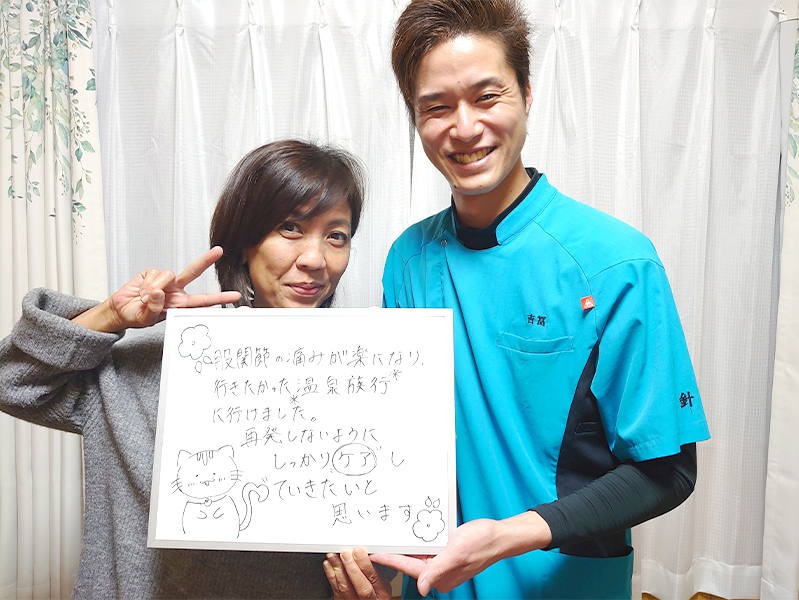 股関節の痛みが楽になり、
行きたかった温泉旅行
に行けました。
再発しないように
しっかりケアし
ていきたいと
思います
吉冨
針